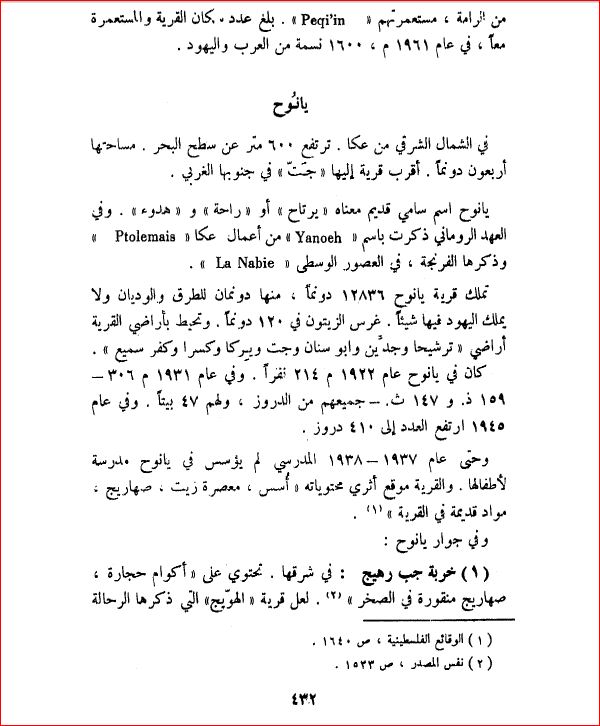 من الرامة ، مستعمرتهم « Peqi'in » . بلغ عدد سكان القرية والمستعمرة
معاً ، في عام ١٩٦١ م ، ١٦٠٠ نسمة من العرب واليهود .
يانُوح
في الشمال الشرقي من عكا . ترتفع ٦٠٠ متر عن سطح البحر . مساحتها
أربعون دونماً . أقرب قرية إليها « جَتّ » في جنوبها الغربي .
يانوح اسم سامي قديم معناه « يرتاح » أو « راحة » و « هدوء » . وفي
العهد الروماني ذكرت باسم « Yanoeh » من أعمال عكا « Ptolemais »
وذكرها الفرنجة ، في العصور الوسطى « La Nabie » .
تملك قرية يانوح ١٢٨٣٦ دونماً ، منها دونمان للطرق والوديان ولا
يملك اليهود فيها شيئاً . غرس الزيتون في ١٢٠ دونماً . وتحيط بأراضي القرية
أراضي « ترشيحا وجدّين وابو سنان وجت ويركا وكسرا وكفر سميع » .
كان في يانوح عام ١٩٢٢ م ٢١٤ نفراً . وفي عام ١٩٣١ م ٣٠٦ –
١٥٩ ذ. و ١٤٧ ث. – جميعهم من الدروز ، ولهم ٤٧ بيتاً . وفي عام
١٩٤٥ ارتفع العدد إلى ٤١٠ دروز .
وحتى عام ١٩٣٧ – ١٩٣٨ المدرسي لم يؤسس في يانوح مدرسة
لأطفالها . والقرية موقع أثري محتوياته « أُسس ، معصرة زيت ، صهاريج ،
مواد قديمة في القرية » (١) .
وفي جوار يانوح :
(١) خربة جب رهيج : في شرقها . تحتوي على « أكوام حجارة ،
صهاريج منقورة في الصخر » (٢) . لعل قرية « الهوّيج » التي ذكرها الرحالة
(١) الوقائع الفلسطينية ، ص ١٦٤٠ .
(٢) نفس المصدر ، ص ١٥٣٣ .
٤٣٢